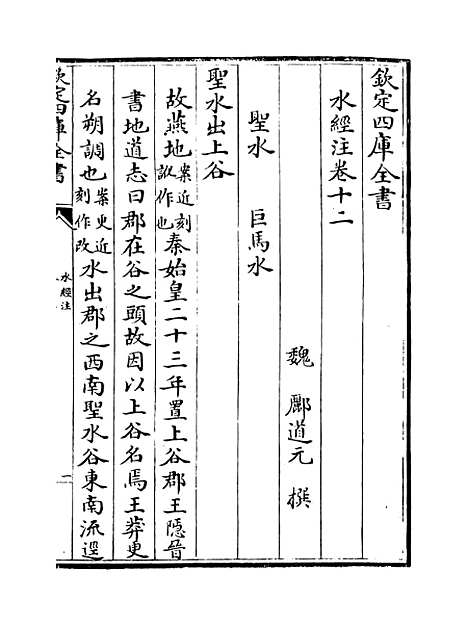 欽定四庫全書
水經注卷十二
魏　酈道元　撰
聖水　巨馬水
聖水出上谷
故燕地案近刻訛作也秦始皇二十三年置上谷郡王隱晉
書地道志曰郡在谷之頭故因以上谷名焉王莽更
名朔調也案更近刻作改水出郡之西南聖水谷東南流逕
欽定四庫全書
水經注
一